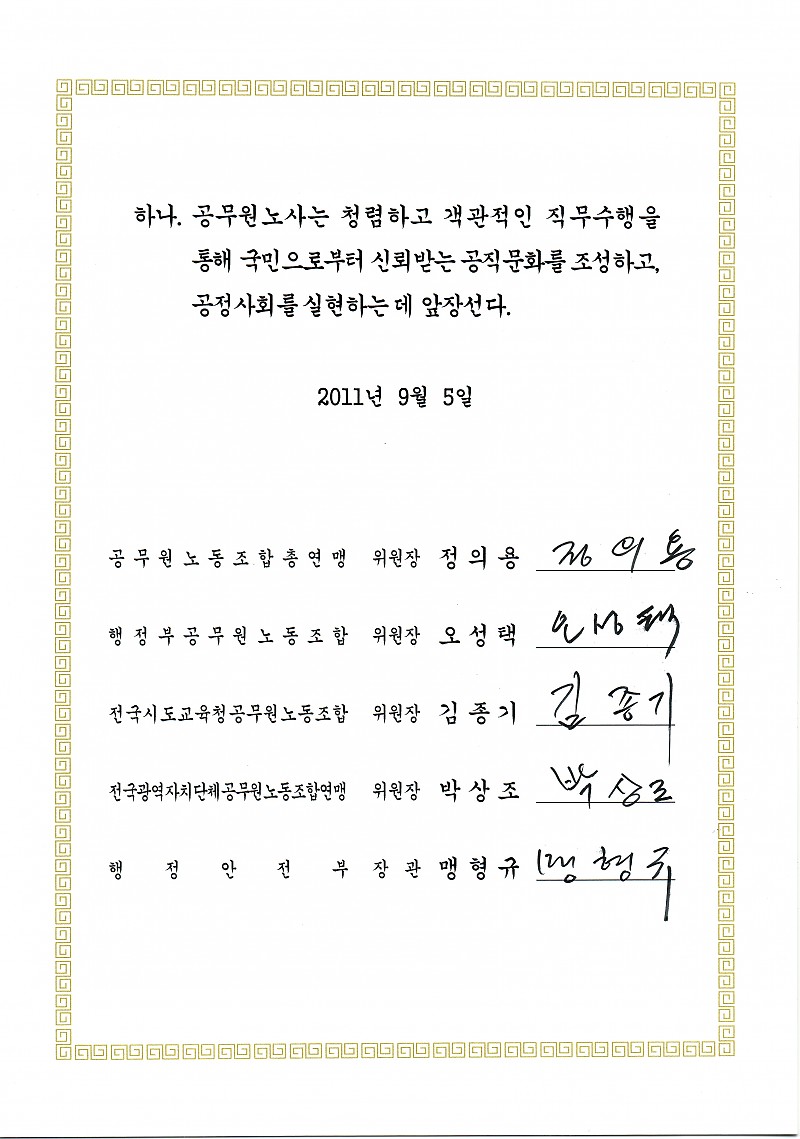 하나. 공무원노사는 청렴하고 객관적인 직무수행을
통해 국민으로부터 신뢰받는 공직문화를 조성하고,
공정사회를 실현하는 데 앞장선다.
2011년 9월 5일
공무원노동조합총연맹 위원장 정의용 정의용
행정부공무원노동조합 위원장 오성택 오성택
전국시도교육청공무원노동조합 위원장 김종기 김종기
전국광역자치단체공무원노동조합연맹 위원장 박상조 박상조
행정안전부장관 맹형규 맹형규